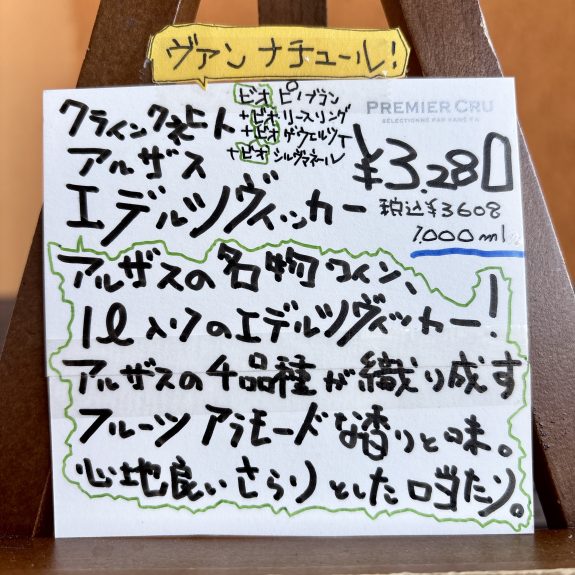 ヴァンナチュール!
ビオ ピノブラン
+ビオ リースリング
+ビオ ゲヴェルツ
+ビオ シルヴァネール
PREMIER CRU
クラインクネヒト
アルザス
エデルツヴィッカー
¥3,280
税込¥3608
1000ml
アルザスの名物ワイン、
1ℓ入りのエデルツヴィッカー!
アルザスの4品種が織り成す
フルーツアラモードな香りと味。
心地良いさらりとした口当たり。